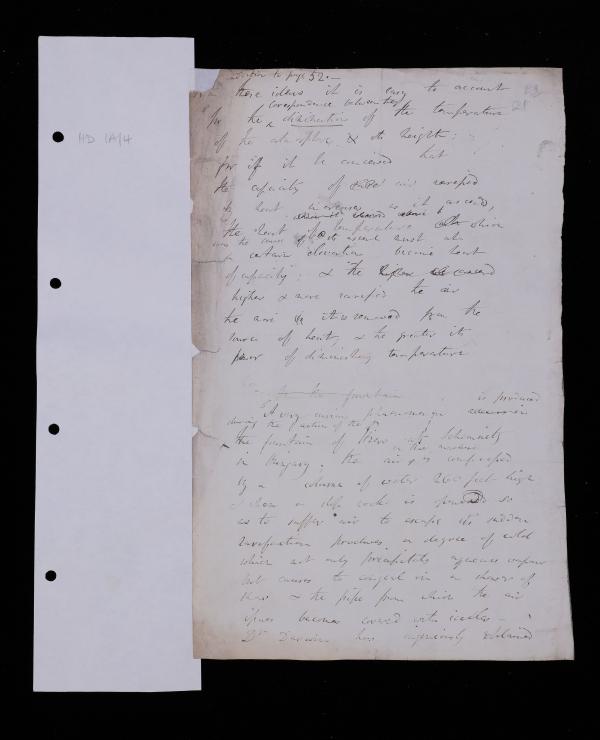 HD 1A/4
page 52.—
these ideas it is easy to account
correspondence between the
for the diminution of the temperature
21
of the atmosphere & its height:
for if it be conceived that
the capacity of air rarefied
for heat increases as it ascends,
the heat of temperature which
was the cause of its ascent must at
a certain elevation become heat
of capacity: & the
higher & more rarefied the air
the more it is removed from the
source of heat, & the greater its
power of diminishing temperature
the fountain
A very curious phenomenon is produced
during the action of the
the fountain of Hiero at Schemnitz
in Hungary. the air is compressed
by a column of water 260 feet high
& when a stop cock is opened so
as to suffer air to escape its sudden
rarefaction produces a degree of cold
which not only precipitates aqueous vapour
but causes it to congeal in a shower of
snow & the pipe from which the air
issues becomes covered with icicles—
Dr Darwin has ingeniously explained